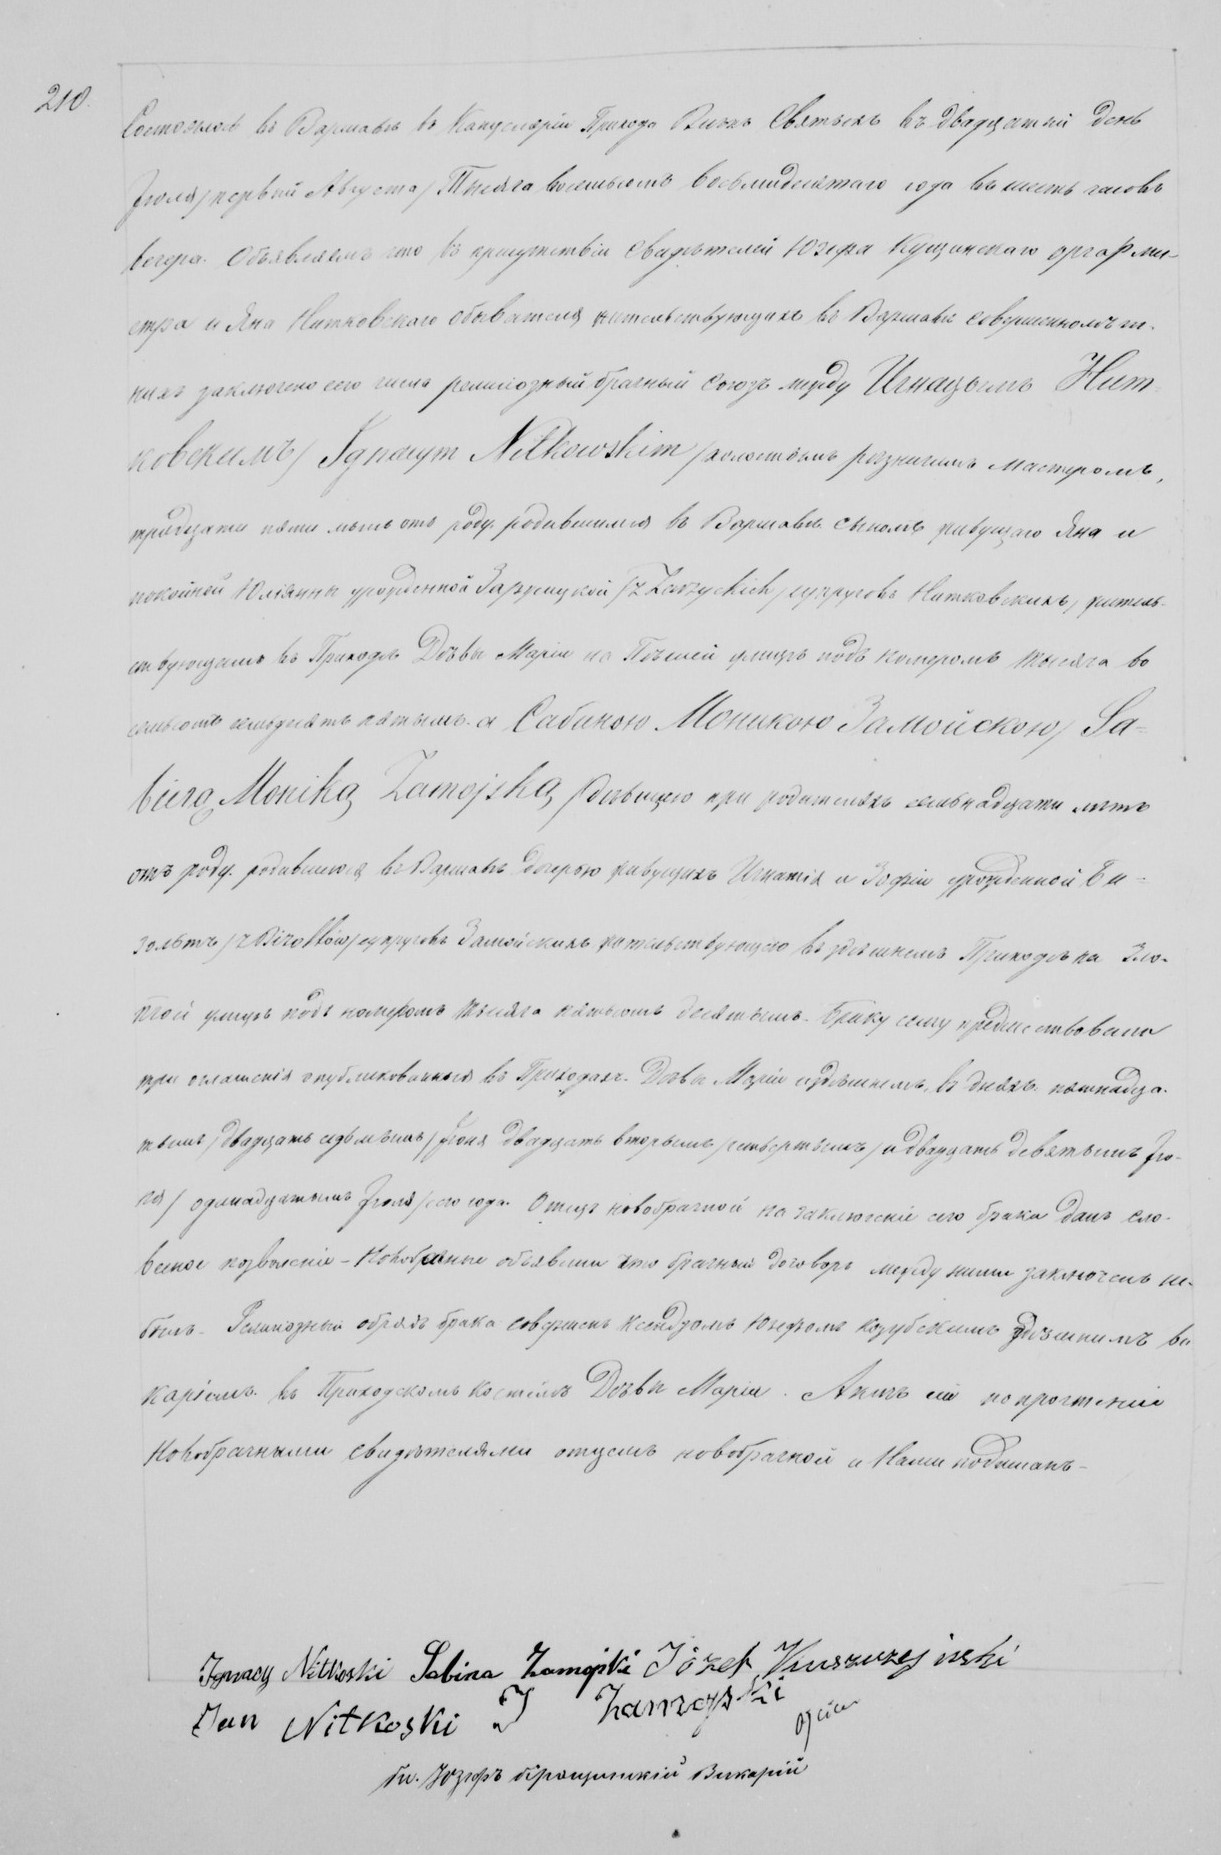 210.
Состоялось въ Варшавѣ въ Канцеляріи Прихода Всѣхъ Святыхъ въ двадцатый день
Іюля /первый Августа/ Тысяча восемьсотъ восьмидесятаго года въ шесть часовъ
вечера. Объявляемъ что въ присутствіи свидѣтелей Юзефа
стра и Яна Нитковскаго обывателя жительствующихъ въ Варшавѣ совершеннолѣт-
нихъ заключено сего числа религіозный брачный союзъ между Игнацымъ Нит
ковскимъ / Ignacym Nitkowskim / холостымъ рѣзничимъ мастеромъ,
тридцати пяти лѣтъ отъ роду. родившимся въ Варшавѣ сыномъ живущаго Яна и
покойной Юліанны урожденной /z Zarzyckich / супруговъ Нитковскихъ, житель-
ствующимъ въ Приходѣ Дѣвы Маріи на улицѣ подъ номеромъ тысяча во
семьсотъ семьдесятъ пятымъ. а Сабиною Моникою Замойскою / Sa-
biną Moniką Zamojską / дѣвицею при родителяхъ семьнадцати лѣтъ
отъ роду. родившеюся въ Варшавѣ дочерью живущихъ Игнатія и Зофіи урожденной Би-
зольтъ / z Bizoltów / супруговъ Замойскихъ жительствующею въ здѣшнемъ Приходѣ на Зло-
той улицѣ подъ номеромъ тысяча пятьсотъ десятымъ. Браку сему предшествовали
три оглашенія опубликованныя въ Приходахъ. Дѣвы Маріи и здѣшнемъ, въ дняхъ. пятнадца-
тымъ / двадцать седьмымъ / Іюня двадцать вторымъ / четвертымъ / и двадцать девятымъ Ію-
ня / одинадцатымъ Іюля / сего года. Отецъ новобрачной на заключеніе сего брака далъ сло-
весное позволеніе - Новобрачные объявили что брачный договоръ между ними заключенъ не-
былъ. Религіозный обрядъ брака совершенъ Ксендзомъ Юзефомъ здѣшнимъ ви
каріемъ. въ Приходскомъ костёлѣ Дѣвы Маріи. Актъ сей по прочтеніи
Новобрачными свидѣтелями отцемъ новобрачной и Нами подписанъ -
Ignacy Nitkoski Sabina Zamojski Józef
Jan Nitkoski I Zamojski
Ojciec
Кс. Юзефъ Викарій